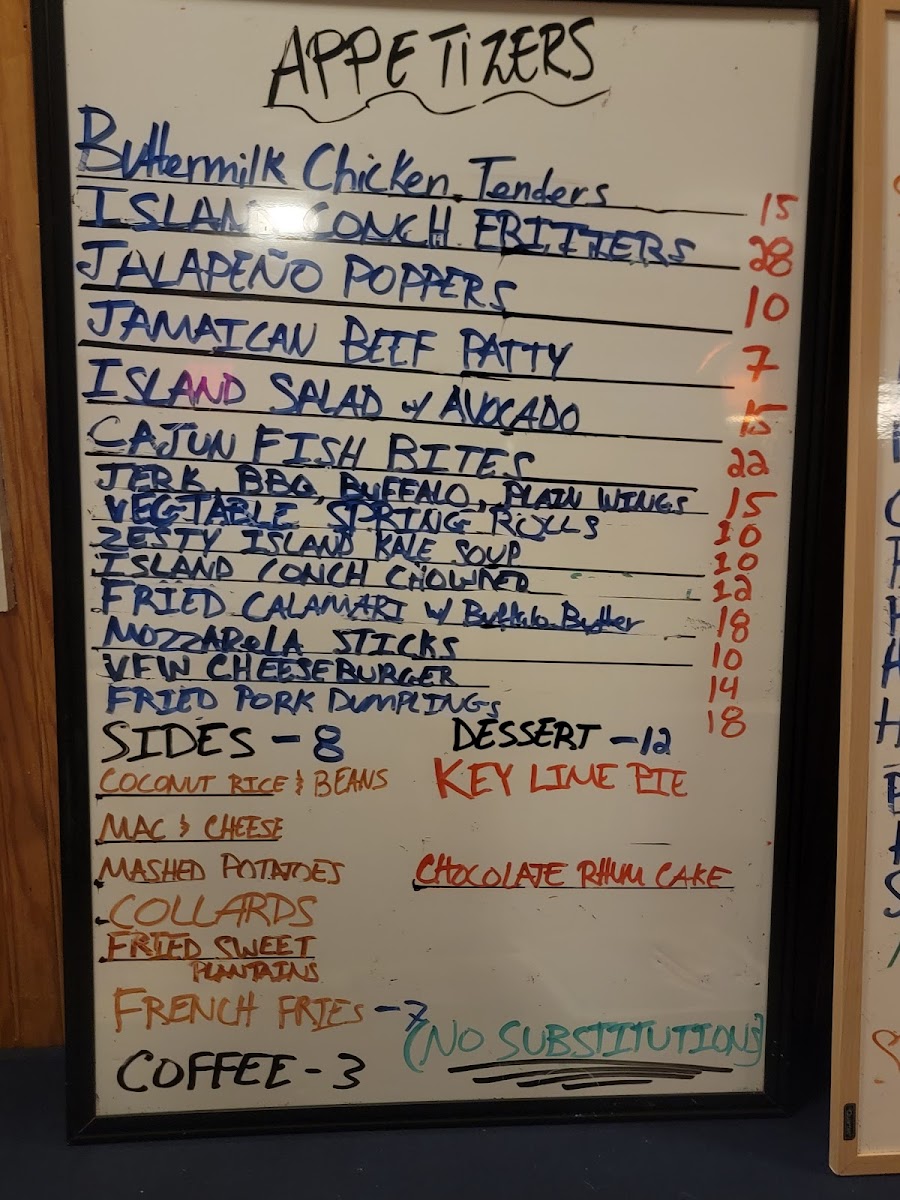 APPETIZERS
Buttermilk Chicken Tenders 15
ISLAND CONCH FRITTERS 28
JALAPEÑO POPPERS 10
JAMAICAN BEEF PATTY 7
ISLAND SALAD w/ AVOCADO 15
CAJUN FISH BITES 22
JERK, BBQ, BUFFALO, PLAIN WINGS 15
VEGTABLE SPRING ROLLS 10
ZESTY ISLAND KALE SOUP 10
ISLAND CONCH CHOWDER 12
FRIED CALAMARI w/ Buffalo Butter 18
MOZZAReLA STICKS 10
VFW CHEESEBURGER 14
FRIED PORK DUMPLINGS 18
SIDES - 8
DESSERT - 12
COCONUT RICE & BEANS
KEY LIME PIE
MAC & CHEESE
MASHED POTATOES
CHOCOLATE RHUM CAKE
COLLARDS
FRIED SWEET
PLANTAINS
FRENCH FRIES - 7
(NO SUBSTITUTIONS)
COFFEE - 3